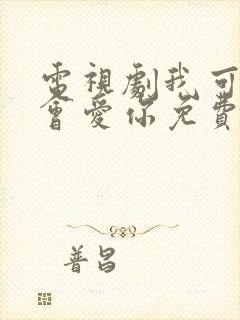 電視劇我可
會愛你免費
普昌